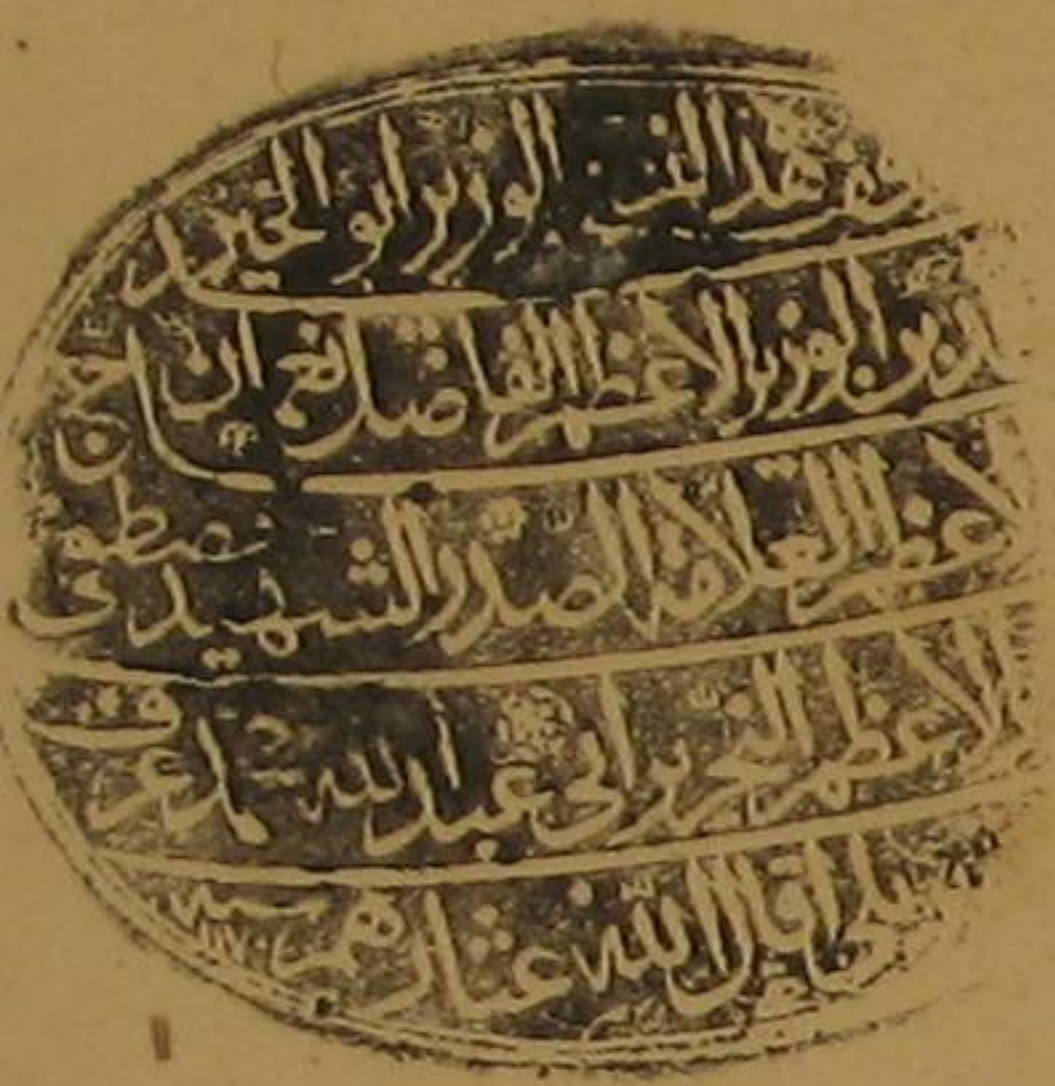 وقف هذا الوزير ابو الخير احمد
بن الوزير الاعظم الفاضل نعمان ابن
الاعظم العلامة الصدر الشهيد مصطفى
الاعظم النحرير ابي عبد الله محمد عرف
اقال الله عثارهم سنة